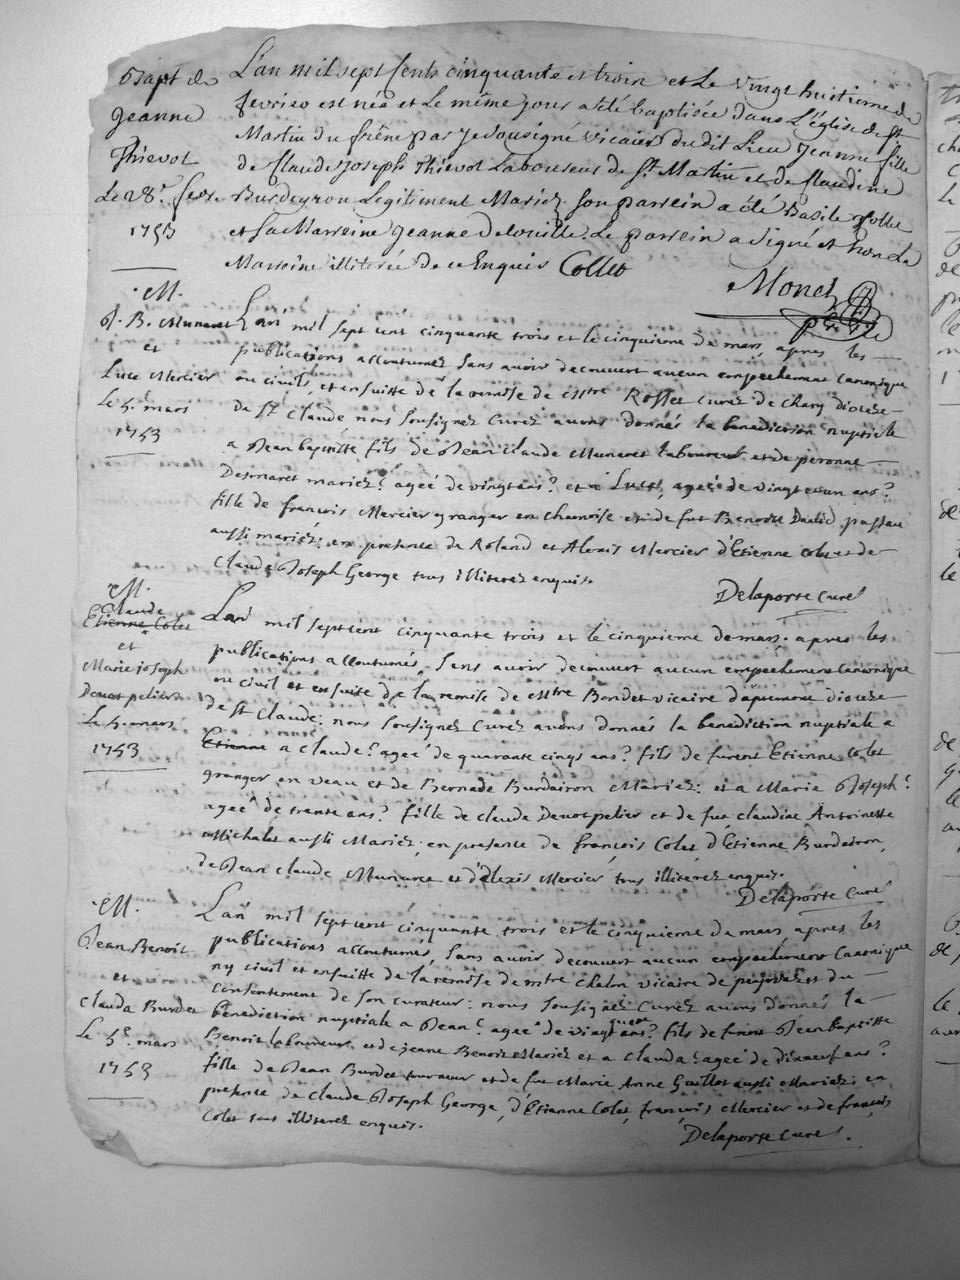 Bapt de
Jeanne
Thievot
Le 28e fevr
1753
L'an mil sept sents cinquante et trois et Le vingt huitieme de
fevrier est née et Le même jour a été baptisée dans L'église de St
Martin du frêne par Je Sousigné vicaire du dit Lieu Jeanne fille
de Claude joseph Thievot Laboureur de St Martin et de Claudine
Burdeyron Legitiment Mariez. Son parrein a été Basile Collet
et Sa Marreine Jeanne Delouille. Le parrein a Signé et non La
Marreine illiterée de ce Enquis Collet
Monet
M.
J. B. Munaret
et
Luce Mercier
Le 5e mars
1753
Lan mil sept cent cinquante trois et le cinquieme de mars, apres les
publications accoutumez Sans avoir decouvert aucun empechement canonique
ou civil, et ensuitte de la remise de Mtre Rosset curez de Chary dioceze
de St Claude nous Soussignez Curez avons donnés la benediction nuptiale
a Jean baptiste fils de Jean claude Munaret laboureur et de peronne
Desmaret mariez: ageé de vingt ans? et a Luce, ageé de vingt et un ans?
fille de francois Mercier granger en et de fut Benoite
aussi mariez: en presence de Roland et Alexis Mercier d'Etienne colet et de
Claude Joseph George tous illiterez enquis.
Delaporte Curé
M.
Claude
Etienne Colet
et
Marie joseph
Denotpelier
Le 5e mars
1753
Lan mil sept cent cinquante trois et le cinquieme de mars. apres les
publications accoutumés, Sans avoir decouvert aucun empechement canonique
ou civil et ensuite de la remise de Mtre Bondet vicaire d'apremont dioceze
de St Claude: nous Soussignez Curez avons donnés la benediction nuptiale a
Etienne a claude: ageé de quarante cinq ans? fils de furent Etienne colet
granger en veau et de Bernade Burdairon Mariez: et a Marie Joseph:
ageé de trente ans? fille de claude Denotpelier et de fut claudine Antoinette
Michalet aussi Mariez; en presence de francois Colet d'Etienne Burdairon,
de Jean claude et d'alexis Mercier tous illiterez enquis.
Delaporte Curé
M.
Jean Benoit
et
Clauda Burdet
Le 5e mars
1753
Lan mil sept cent cinquante trois et le cinquieme de mars, apres les
publications accoutumés, Sans avoir decouvert aucun empechement Canonique
ny civil et ensuitte de la remise de mtre chalon vicaire de et du
consentement de Son curateur: nous Soussignez Curez avons donnés la
benediction nuptiale a Jean: ageé de vingt ans? fils de Jean baptiste
Benoit laboureur et de jeane Benoit Mariez et a Clauda: ageé de dixneuf ans?
fille de Jean Burdet et de fue Marie Anne Guillot aussi Mariez; en
presence de Claude Joseph George, d'Etienne Colet, francois Mercier et de francois
Colet tous illiterez enquis.
Delaporte Curé.